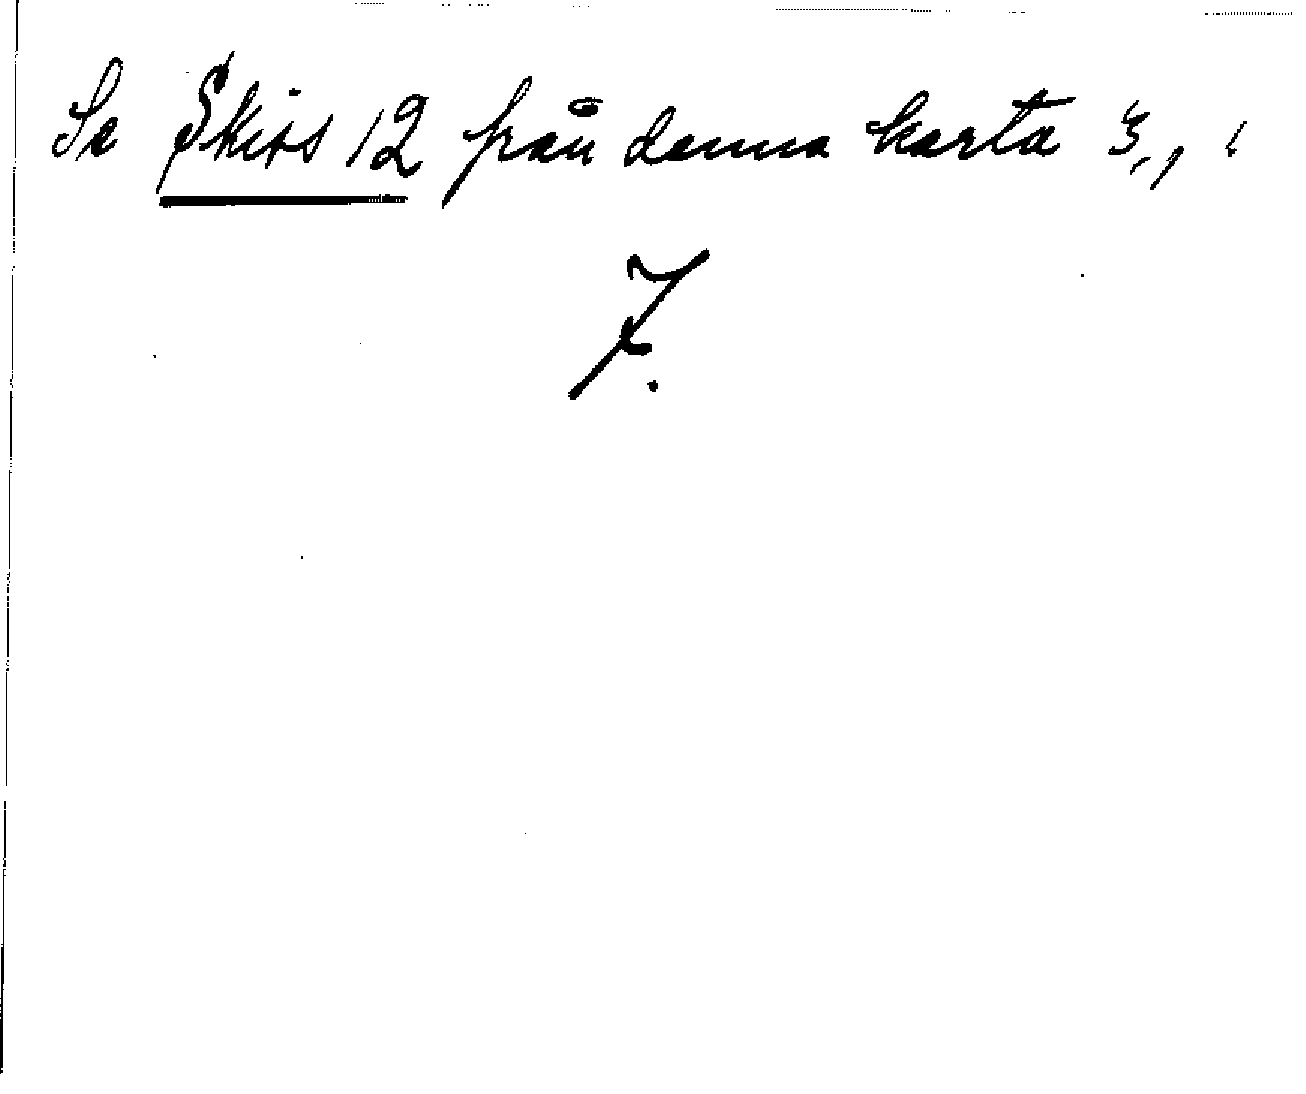 Se Skiss 12 från denna karta 3,,
7.